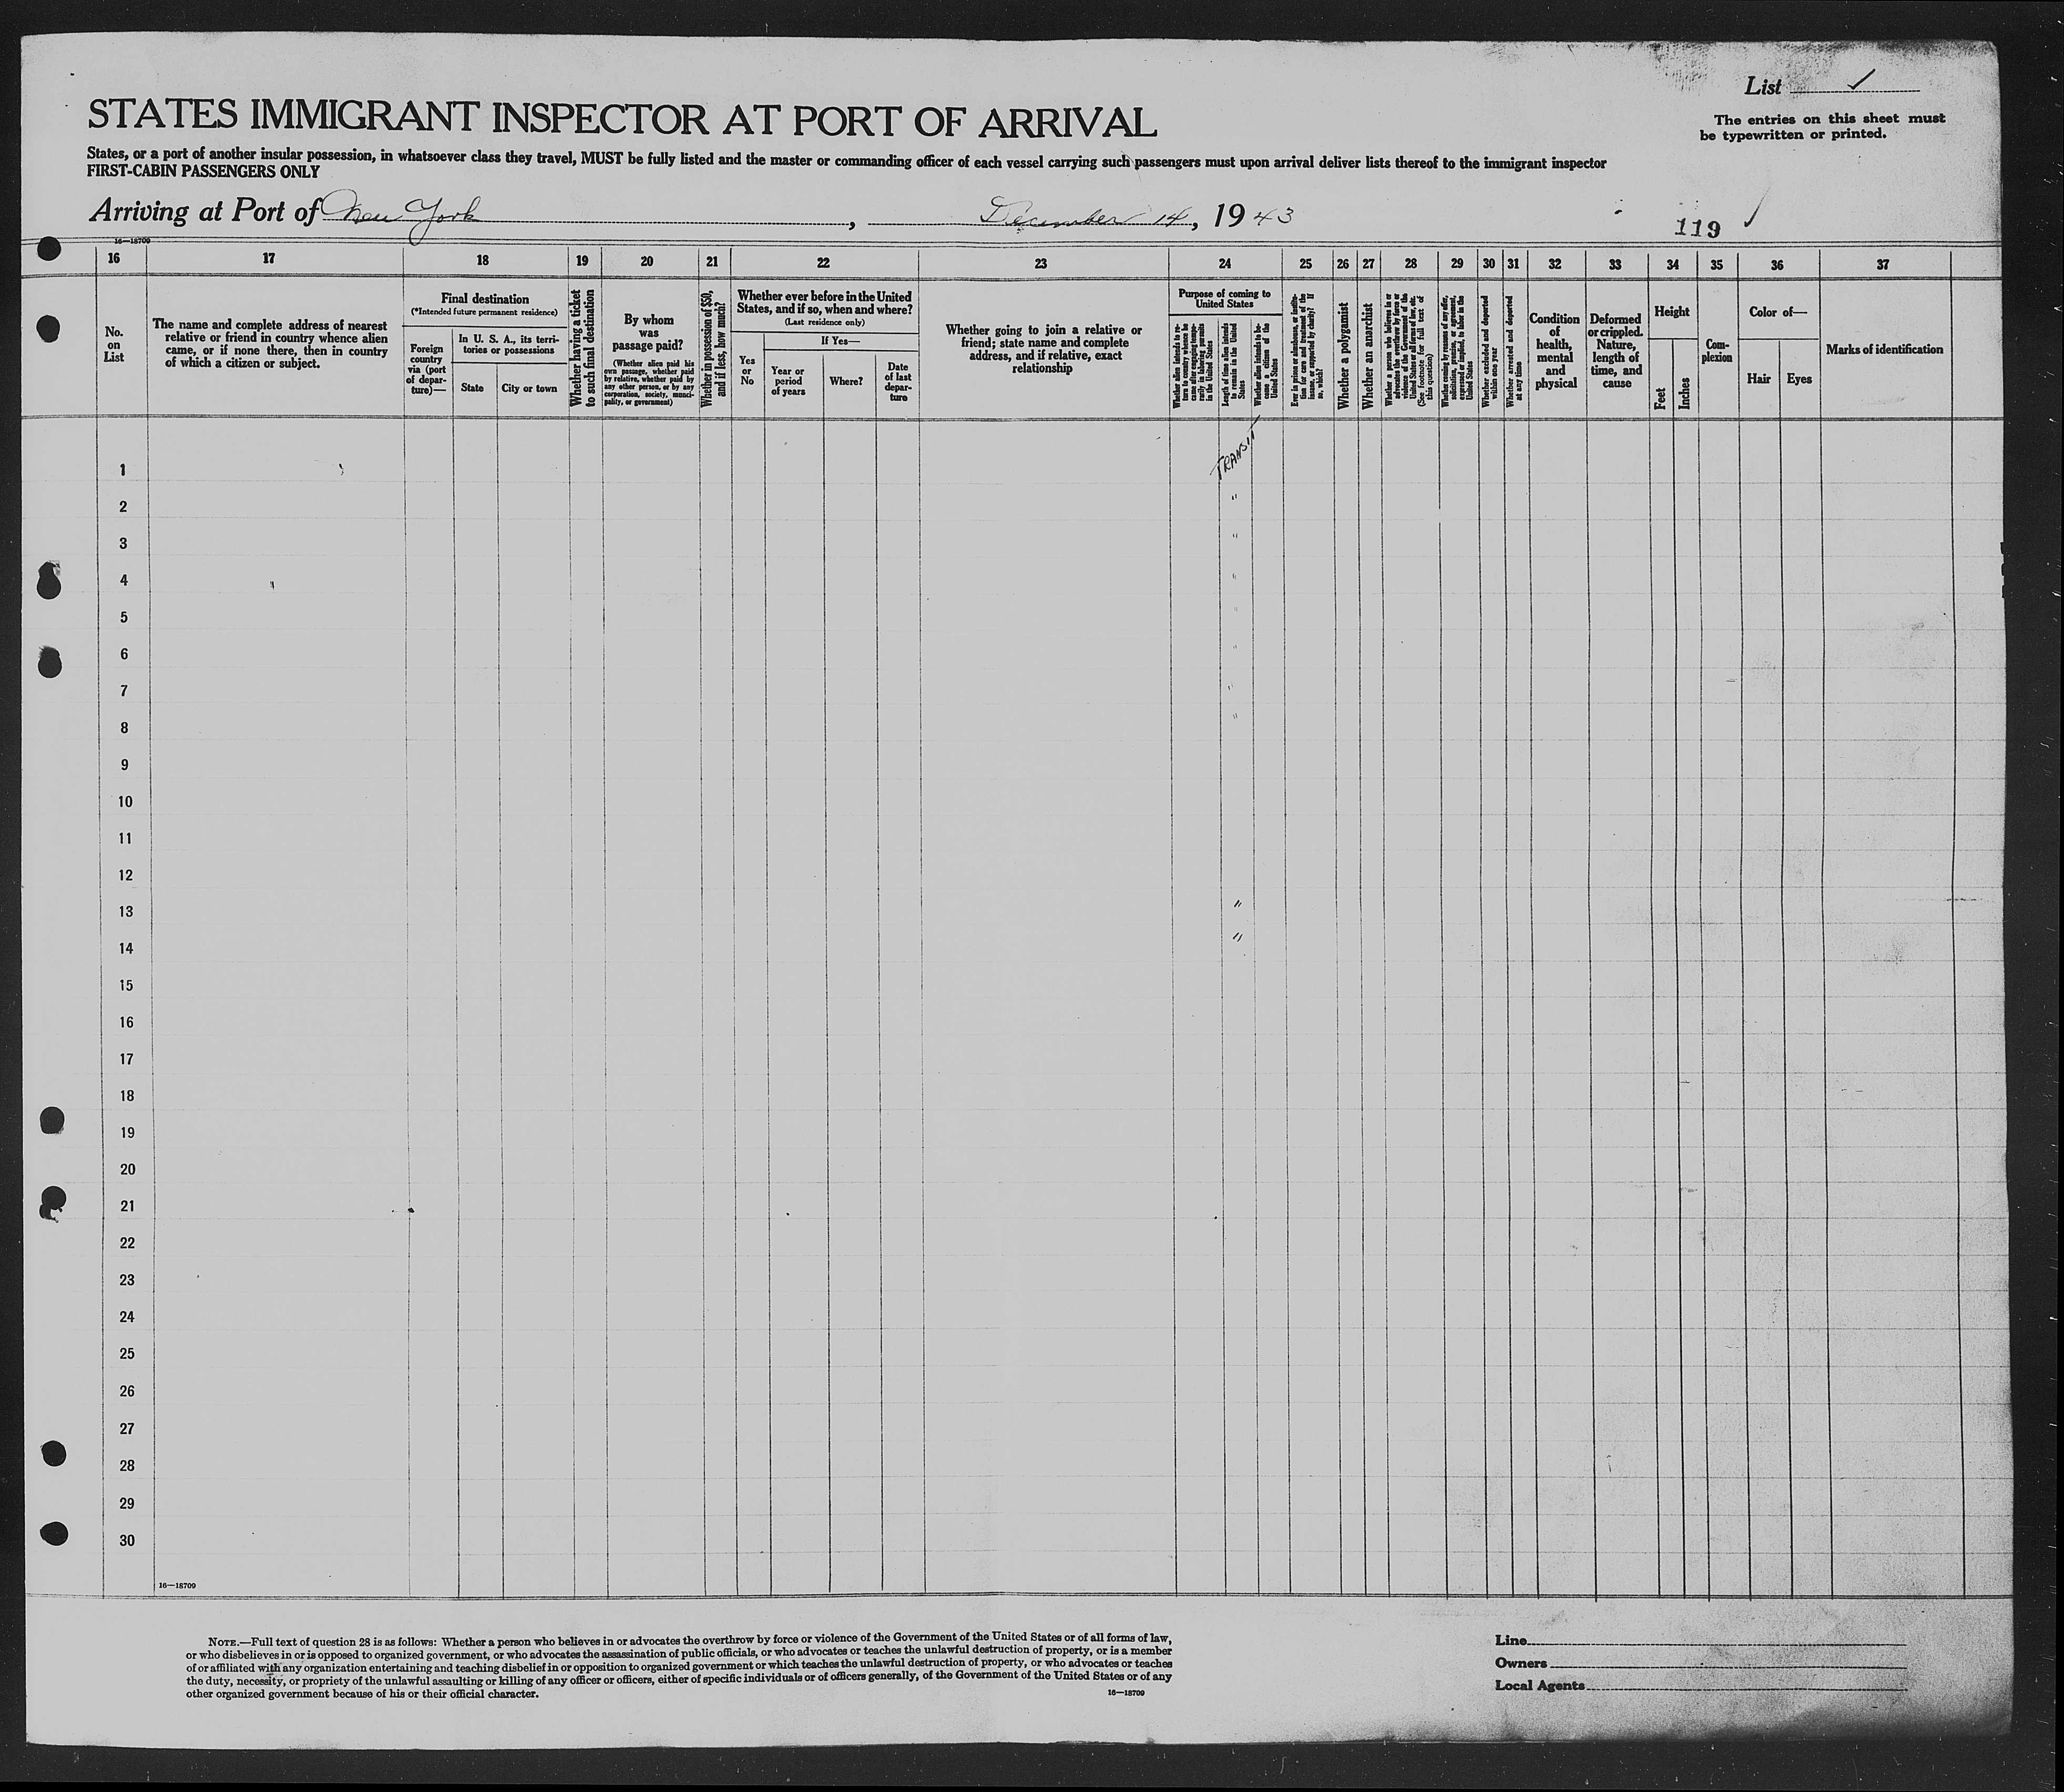 List ✓
The entries on this sheet must
be typewritten or printed.
STATES IMMIGRANT INSPECTOR AT PORT OF ARRIVAL
States, or a port of another insular possession, in whatsoever class they travel, MUST be fully listed and the master or commanding officer of each vessel carrying such passengers must upon arrival deliver lists thereof to the immigrant inspector
FIRST-CABIN PASSENGERS ONLY
Arriving at Port of New York, December 14, 1943
119 ✓
16—18709
16 17 18 19 20 21 22 23 24 25 26 27 28 29 30 31 32 33 34 35 36 37
No.
on
List
The name and complete address of nearest
relative or friend in country whence alien
came, or if none there, then in country
of which a citizen or subject.
Final destination
(*Intended future permanent residence)
Foreign
country
via (port
of depar-
ture)—
In U. S. A., its terri-
tories or possessions
State
City or town
Whether having a ticket
to such final destination
By whom
was
passage paid?
(Whether alien paid his
own passage, whether paid
by relative, whether paid by
any other person, or by any
corporation, society, munici-
pality, or government)
Whether in possession of $50,
and if less, how much?
Whether ever before in the United
States, and if so, when and where?
(Last residence only)
Yes
or
No
If Yes—
Year or
period
of years
Where?
Date
of last
depar-
ture
Whether going to join a relative or
friend; state name and complete
address, and if relative, exact
relationship
Purpose of coming to
United States
Whether alien intends to re-
turn to country whence he
came after engaging tempo-
rarily in laboring pursuits
in the United States
Length of time alien intends
to remain in the United
States
Whether alien intends to be-
come a citizen of the
United States
Ever in prison or almshouse, or institu-
tion for care and treatment of the
insane, or supported by charity? If
so, which?
Whether a polygamist
Whether an anarchist
Whether a person who believes in or
advocates the overthrow by force or
violence of the Government of the
United States or all forms of law, etc.
(See footnote for full text of
this question)
Whether coming by reason of any offer,
solicitation, promise, or agreement,
expressed or implied, to labor in the
United States
Whether excluded and deported
within one year
Whether arrested and deported
at any time
Condition
of
health,
mental
and
physical
Deformed
or crippled.
Nature,
length of
time, and
cause
Height
Feet
Inches
Com-
plexion
Color of—
Hair
Eyes
Marks of identification
1 TRANSIT
2 "
3 "
4 "
5 "
6 "
7 "
8 "
9
10
11
12
13 "
14 "
15
16
17
18
19
20
21
22
23
24
25
26
27
28
29
30
16—18709
NOTE.—Full text of question 28 is as follows: Whether a person who believes in or advocates the overthrow by force or violence of the Government of the United States or of all forms of law,
or who disbelieves in or is opposed to organized government, or who advocates the assassination of public officials, or who advocates or teaches the unlawful destruction of property, or is a member
of or affiliated with any organization entertaining and teaching disbelief in or opposition to organized government or which teaches the unlawful destruction of property, or who advocates or teaches
the duty, necessity, or propriety of the unlawful assaulting or killing of any officer or officers, either of specific individuals or of officers generally, of the Government of the United States or of any
other organized government because of his or their official character.
16—18709
Line
Owners
Local Agents